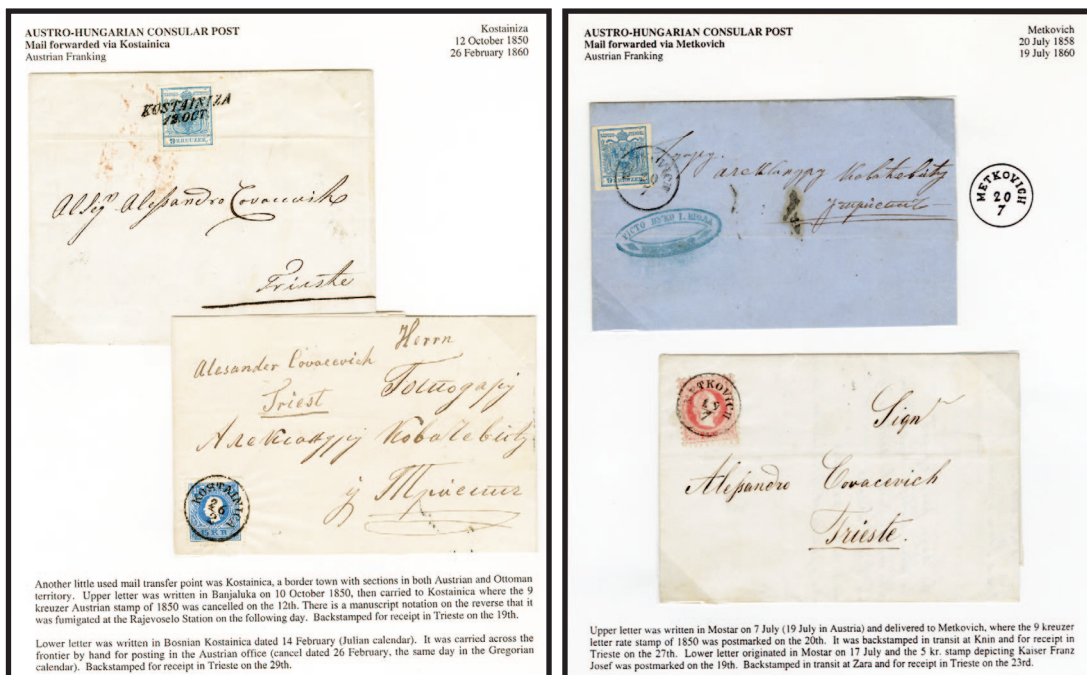 AUSTRO-HUNGARIAN CONSULAR POST
Mail forwarded via Kostainica
Austrian Franking
Kostainiza
12 October 1850
26 February 1860
KOSTAINIZA
12.OCT.
9 KREUZER.
Alessandro Covacevich
Trieste
Alesander Covacevich
Triest
Herrn
Господару
Александру Ковачевићу
у Тріесту
KOSTAINICA
26
2
Another little used mail transfer point was Kostainica, a border town with sections in both Austrian and Ottoman
territory. Upper letter was written in Banjaluka on 10 October 1850, then carried to Kostainica where the 9
kreuzer Austrian stamp of 1850 was cancelled on the 12th. There is a manuscript notation on the reverse that it
was fumigated at the Rajevoselo Station on the following day. Backstamped for receipt in Trieste on the 19th.
Lower letter was written in Bosnian Kostainica dated 14 February (Julian calendar). It was carried across the
frontier by hand for posting in the Austrian office (cancel dated 26 February, the same day in the Gregorian
calendar). Backstamped for receipt in Trieste on the 29th.
AUSTRO-HUNGARIAN CONSULAR POST
Mail forwarded via Metkovich
Austrian Franking
Metkovich
20 July 1858
19 July 1860
METKOVICH
20
7
METKOVICH
19
7
Sign
Alessandro Covacevich
Trieste.
Upper letter was written in Mostar on 7 July (19 July in Austria) and delivered to Metkovich, where the 9 kreuzer
letter rate stamp of 1850 was postmarked on the 20th. It was backstamped in transit at Knin and for receipt in
Trieste on the 27th. Lower letter originated in Mostar on 17 July and the 5 kr. stamp depicting Kaiser Franz
Josef was postmarked on the 19th. Backstamped in transit at Zara and for receipt in Trieste on the 23rd.